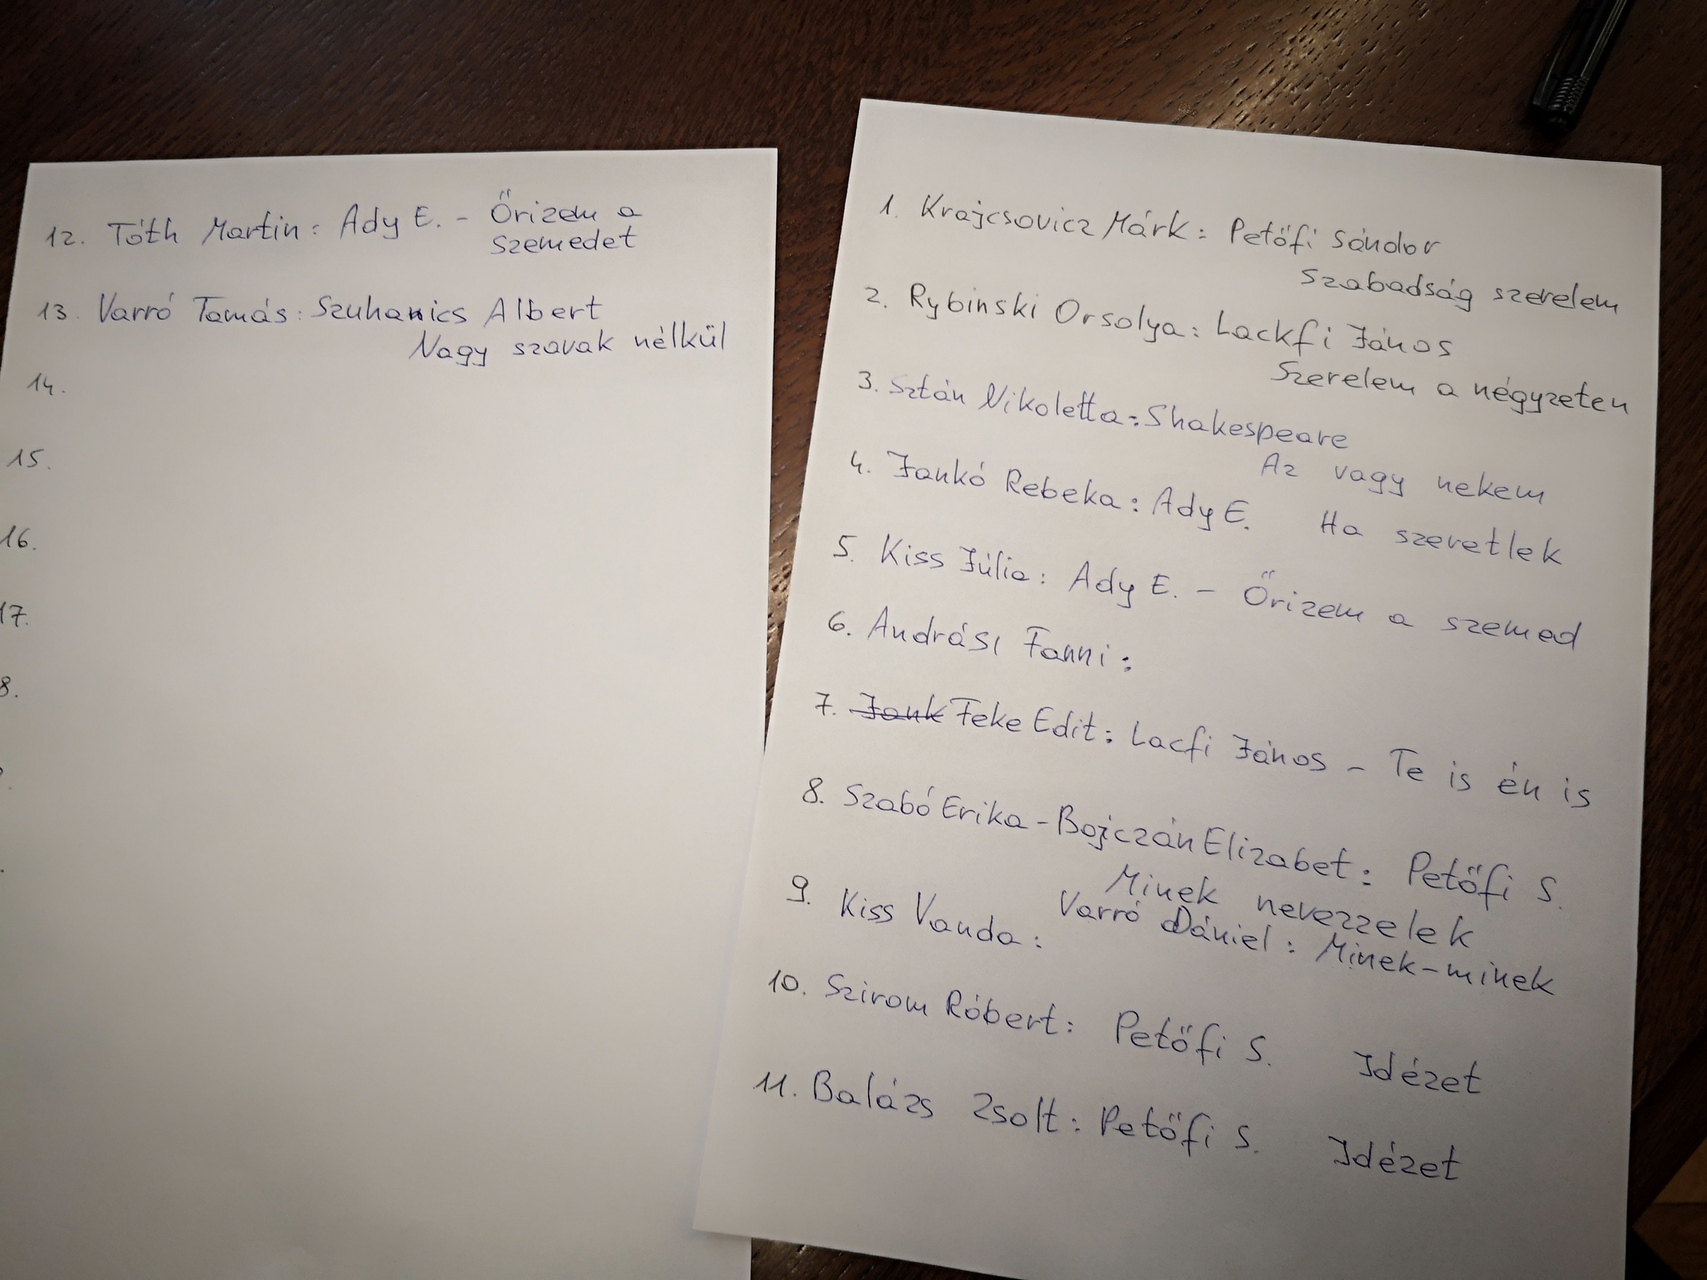 1. Krajcsovicz Márk: Petőfi Sándor
Szabadság szerelem
2. Rybinski Orsolya: Lackfi János
Szerelem a négyzeten
3. Sztán Nikoletta: Shakespeare
Az vagy nekem
4. Jankó Rebeka: Ady E. Ha szeretlek
5. Kiss Júlia: Ady E. - Őrizem a szemed
6. Andrási Fanni:
7. Jank Feke Edit: Lacfi János - Te is én is
8. Szabó Erika - Bojczán Elizabet: Petőfi S.
Minek nevezzelek
9. Kiss Vanda: Varró Dániel: Minek-minek
10. Szirom Róbert: Petőfi S. Idézet
11. Balázs Zsolt: Petőfi S. Idézet
12. Tóth Martin: Ady E. - Őrizem a
szemedet
13. Varró Tamás: Szuhanics Albert
Nagy szavak nélkül
14.
15.
16.
17.
8.